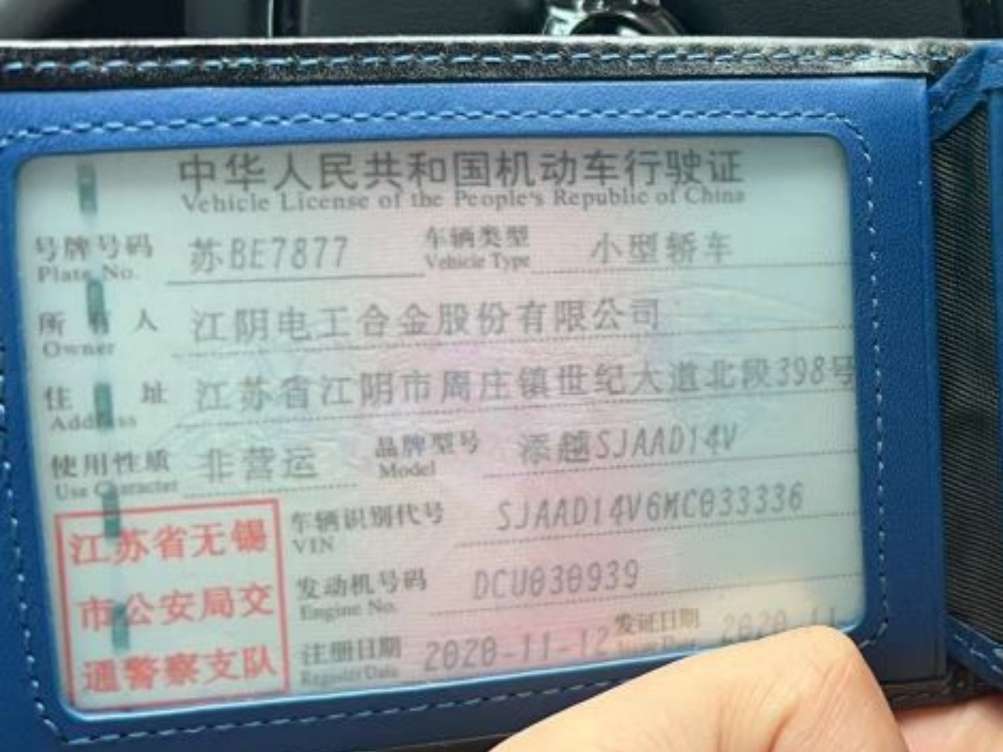 中华人民共和国机动车行驶证
Vehicle License of the People's Republic of China
号牌号码 苏BE7877 车辆类型 小型轿车
Plate No. Vehicle Type
所有人 江阴电工合金股份有限公司
Owner
住址 江苏省江阴市周庄镇世纪大道北段398号
Address
使用性质 非营运 品牌型号 添越SJAAD14V
Use Character Model
江苏省无锡
市公安局交
通警察支队
车辆识别代号 SJAAD14V6MC033336
VIN
发动机号码 DCU030939
Engine No.
注册日期 2020-11-12 发证日期 2020-11
Register Date Issue Date